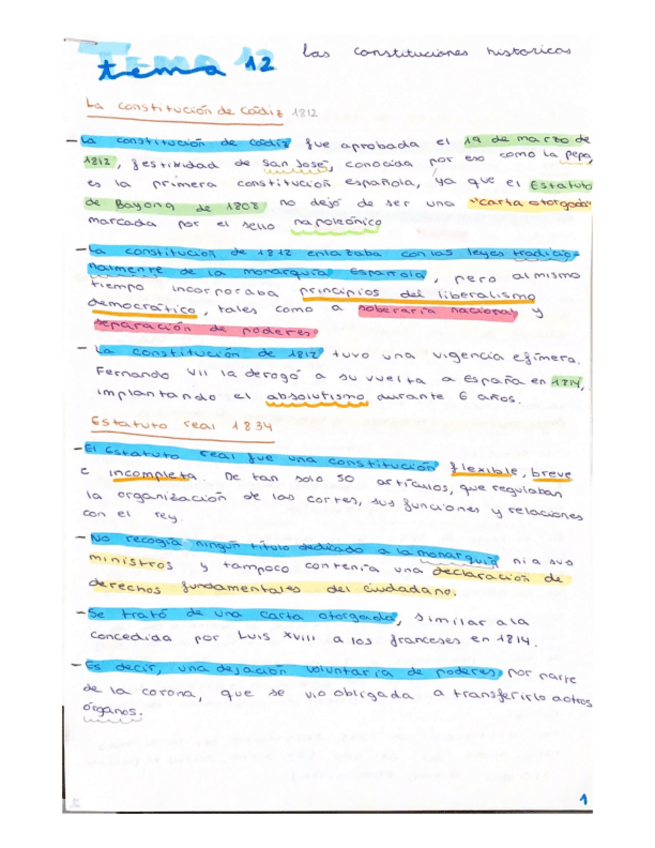 Tema 12 las constituciones historicas
La constitución de Cádiz 1812
- La constitución de Cádiz fue aprobada el 19 de marzo de
1812, festividad de San José, conocida por eso como La Pepa,
es la primera constitución española, ya que el Estatuto
de Bayona de 1808 no dejó de ser una "carta otorgada"
marcada por el sello napoleónico
- La constitución de 1812 enlazaba con las leyes tradicio-
nalmente de la monarquía Española, pero al mismo
tiempo incorporaba principios del liberalismo
democrático, tales como a soberaría nacional y
separación de poderes
- La constitución de 1812 tuvo una vigencia efímera.
Fernando VII la derogó a su vuelta a España en 1814,
implantando el absolutismo durante 6 años.
Estatuto real 1834
- El Estatuto real fue una constitución flexible, breve
e incompleta. De tan solo 50 artículos, que regulaban
la organización de las cortes, sus funciones y relaciones
con el rey.
- No recogía ningún título dedicado a la monarquía ni a sus
ministros y tampoco contenía una declaración de
derechos fundamentales del ciudadano.
- Se trató de una carta otorgada, similar a la
concedida por Luis XVIII a los franceses en 1814.
- Es decir, una dejación voluntaria de poderes por parte
de la corona, que se vio obligada a transferirlo a otros
órganos.
1